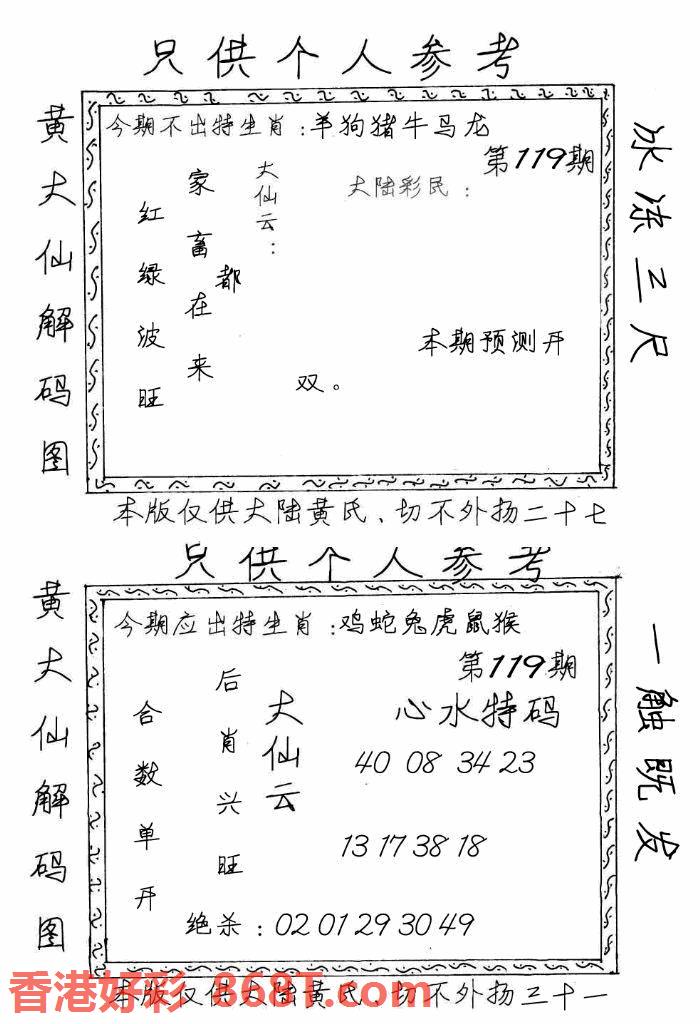 只供个人参考
黄大仙解码图
今期不出特生肖：羊狗猪牛马龙
第119期
大陆彩民：
大仙云：
家畜都在来
红绿波旺
本期预测开
双。
冰冻三尺
本版仅供大陆黄氏、切不外扬二十七
只供个人参考
黄大仙解码图
今期应出特生肖：鸡蛇兔虎鼠猴
第119期
心水特码
大仙云
后肖兴旺
合数单开
40 08 34 23
13 17 38 18
绝杀：02 01 29 30 49
一触既发
本版仅供大陆黄氏、切不外扬三十一
香港好彩 868T.com